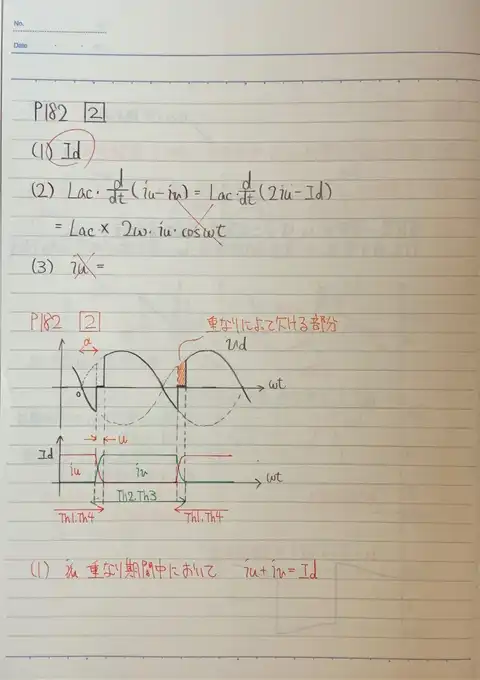 No.
Date
P182 [2]
(1) Id
(2) Lac・d/dt(iu-iv) = Lac・d/dt(2iu-Id)
= Lac × 2ω・iu・cosωt
(3) iu =
P182 [2]
重なりによって欠ける部分
α
vd
0
ωt
u
Id
iu
iv
ωt
Th2.Th3
Th1.Th4
Th1.Th4
(1) 重なり期間中において iu+iv=Id